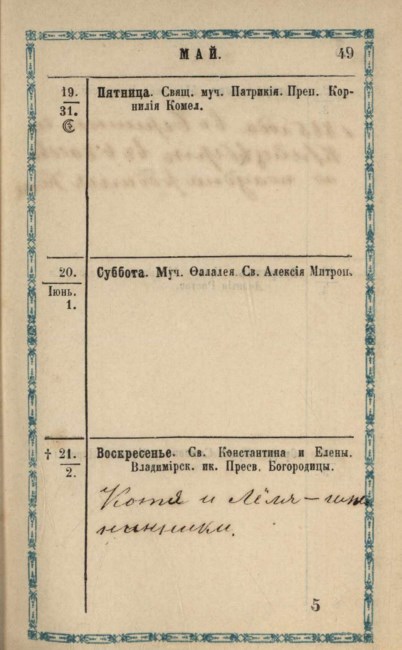 МАЙ. 49
19.
31.
Пятница. Свящ. муч. Патрикія. Преп. Кор-
нилія Комел.
20.
Іюнь.
1.
Суббота. Муч. Ѳалалея Св. Алексія Митроп.
† 21.
2.
Воскресенье. Св. Константина и Елены.
Владимірск. ик. Пресв. Богородицы.
Котя и Лёля – име
нинники.
5